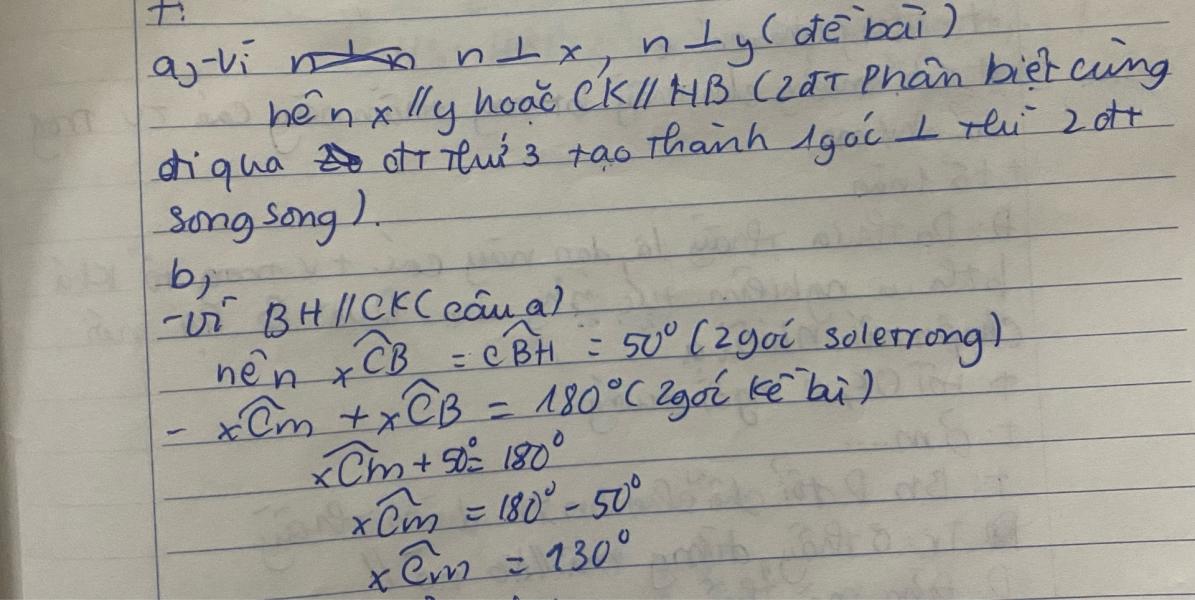 a,-Vì n ⊥ x, n ⊥ y (đề bài)
nên x // y hoặc CK // HB (2đt phân biệt cùng
đi qua đt thứ 3 tạo thành 1 góc ⊥ thì 2 đtt
song song).
b,
-Vì BH // CK (câu a)
nên xCB = CBH = 50° (2 gói soletrong)
- xCm + xCB = 180° (2 gói kề bù)
xCm + 50° = 180°
xCm = 180° - 50°
xCm = 130°